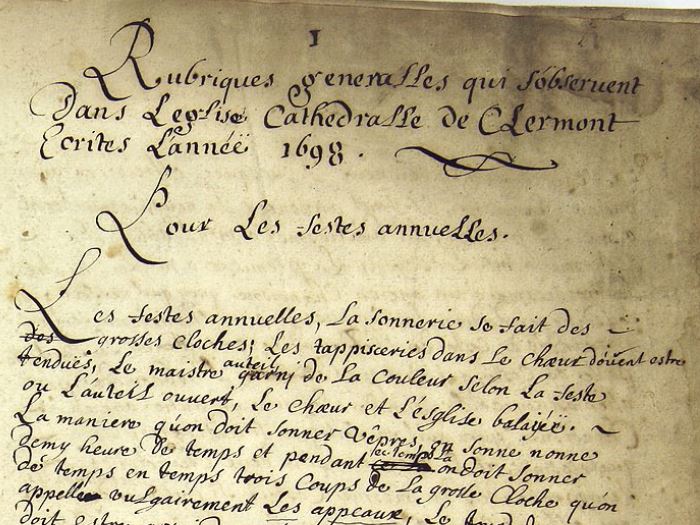 1
Rubriques generalles qui sobservent
Dans Leglise Cathedralle de Clermont
Ecrites L'annéë 1698.
Pour Les festes annuelles.
Les festes annuelles, La sonnerie se fait des
des grosses Cloches; Les tappisceries dans Le chœur doivent estre
tenduës, Le maistre auteil garni de La Couleur selon La feste
ou L'auteil ouvert, Le chœur et L'ésglise balayéë.
La maniere qu'on doit sonner Vêpres, on sonne nonne
demy heure de temps et pendant ce temps La on doit sonner
de temps en temps trois Coups de La grosse Cloche qu'on
appelle vulgairement Les appeaux, Le
doit estre